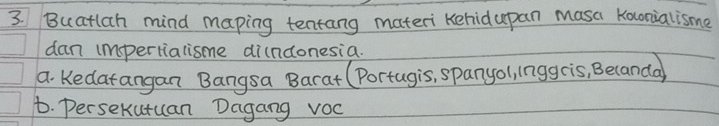 3. Buatlah mind maping tentang materi Kehidupan Masa Kolonialisme
dan impertialisme diindonesia.
a. Kedatangan Bangsa Barat (Portugis, spanyol, inggris, Belanda)
b. Persekutuan Dagang voc